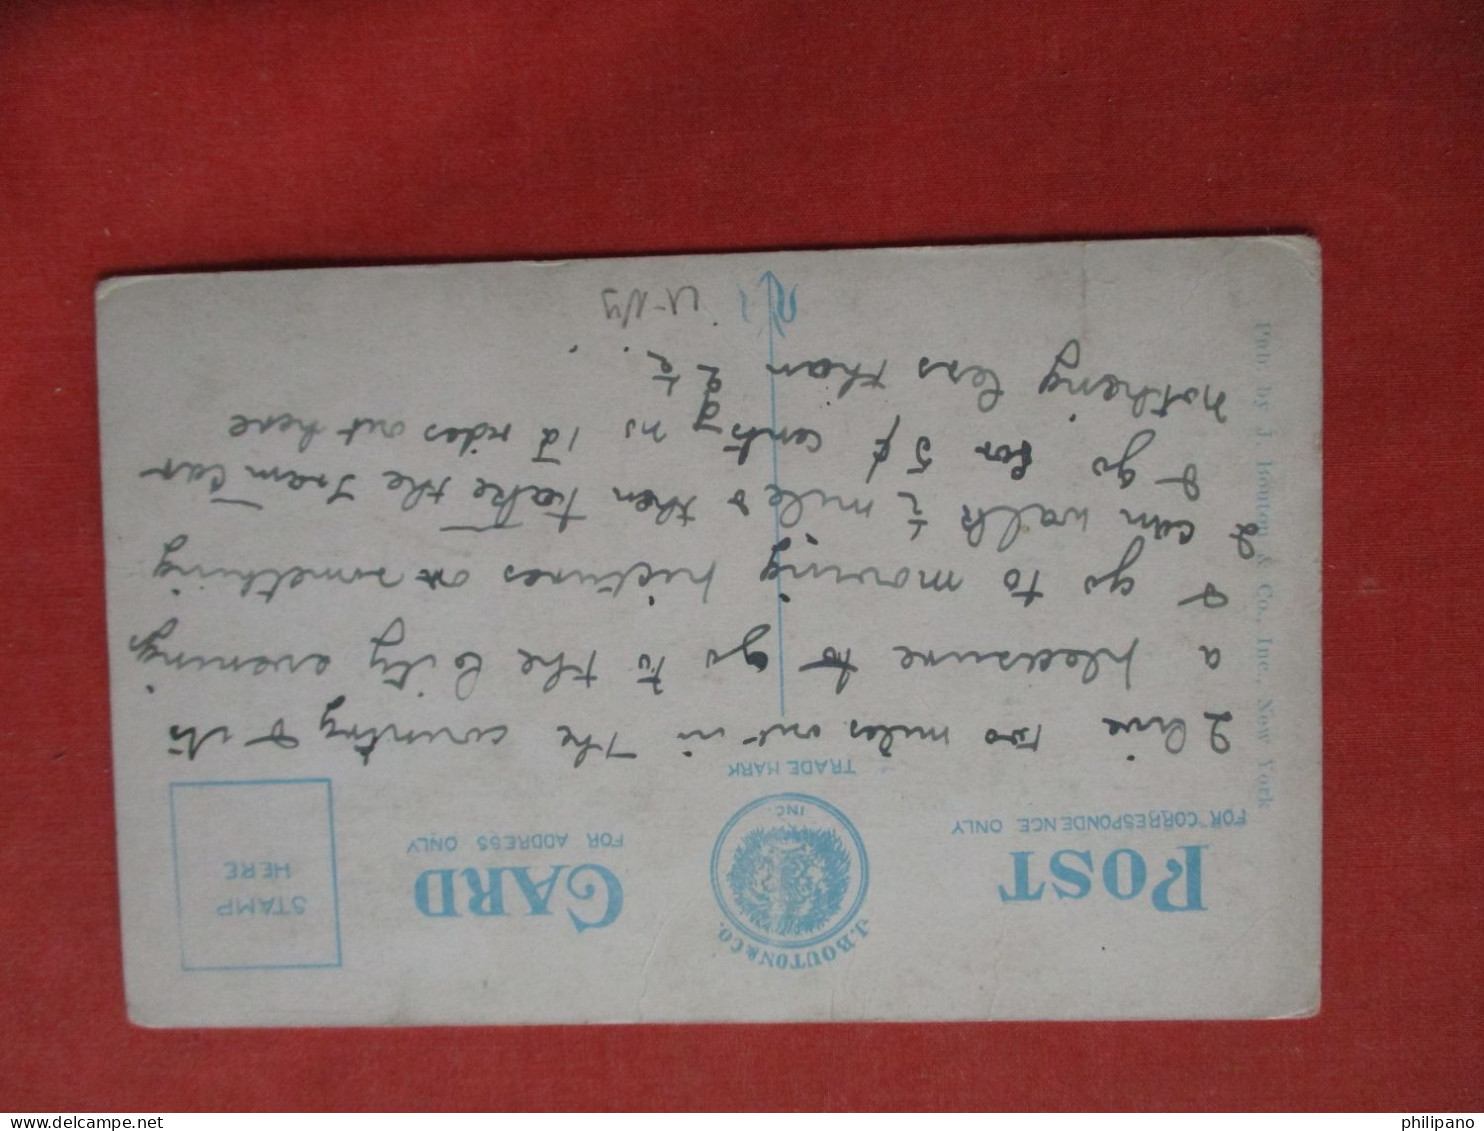 POST CARD
FOR CORRESPONDENCE ONLY
FOR ADDRESS ONLY
J. BOUTON & CO.
INC.
TRADE MARK
STAMP
HERE
Pub. by J. Bouton & Co., Inc., New York
I live two miles out in the country & its
a pleasure to go to the City evening
& go to moving pictures or something
I can walk ½ mile & then take the Tram Car
& go for 5 ¢ cents no 1d rides out here
nothing less than 2½d.
philipano